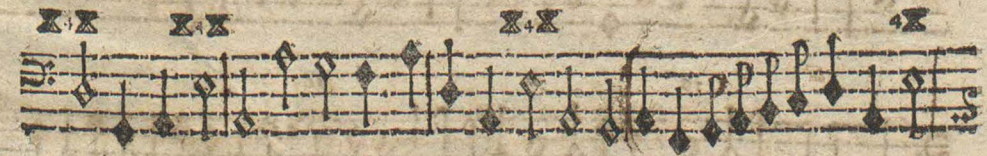 4 4 4 4